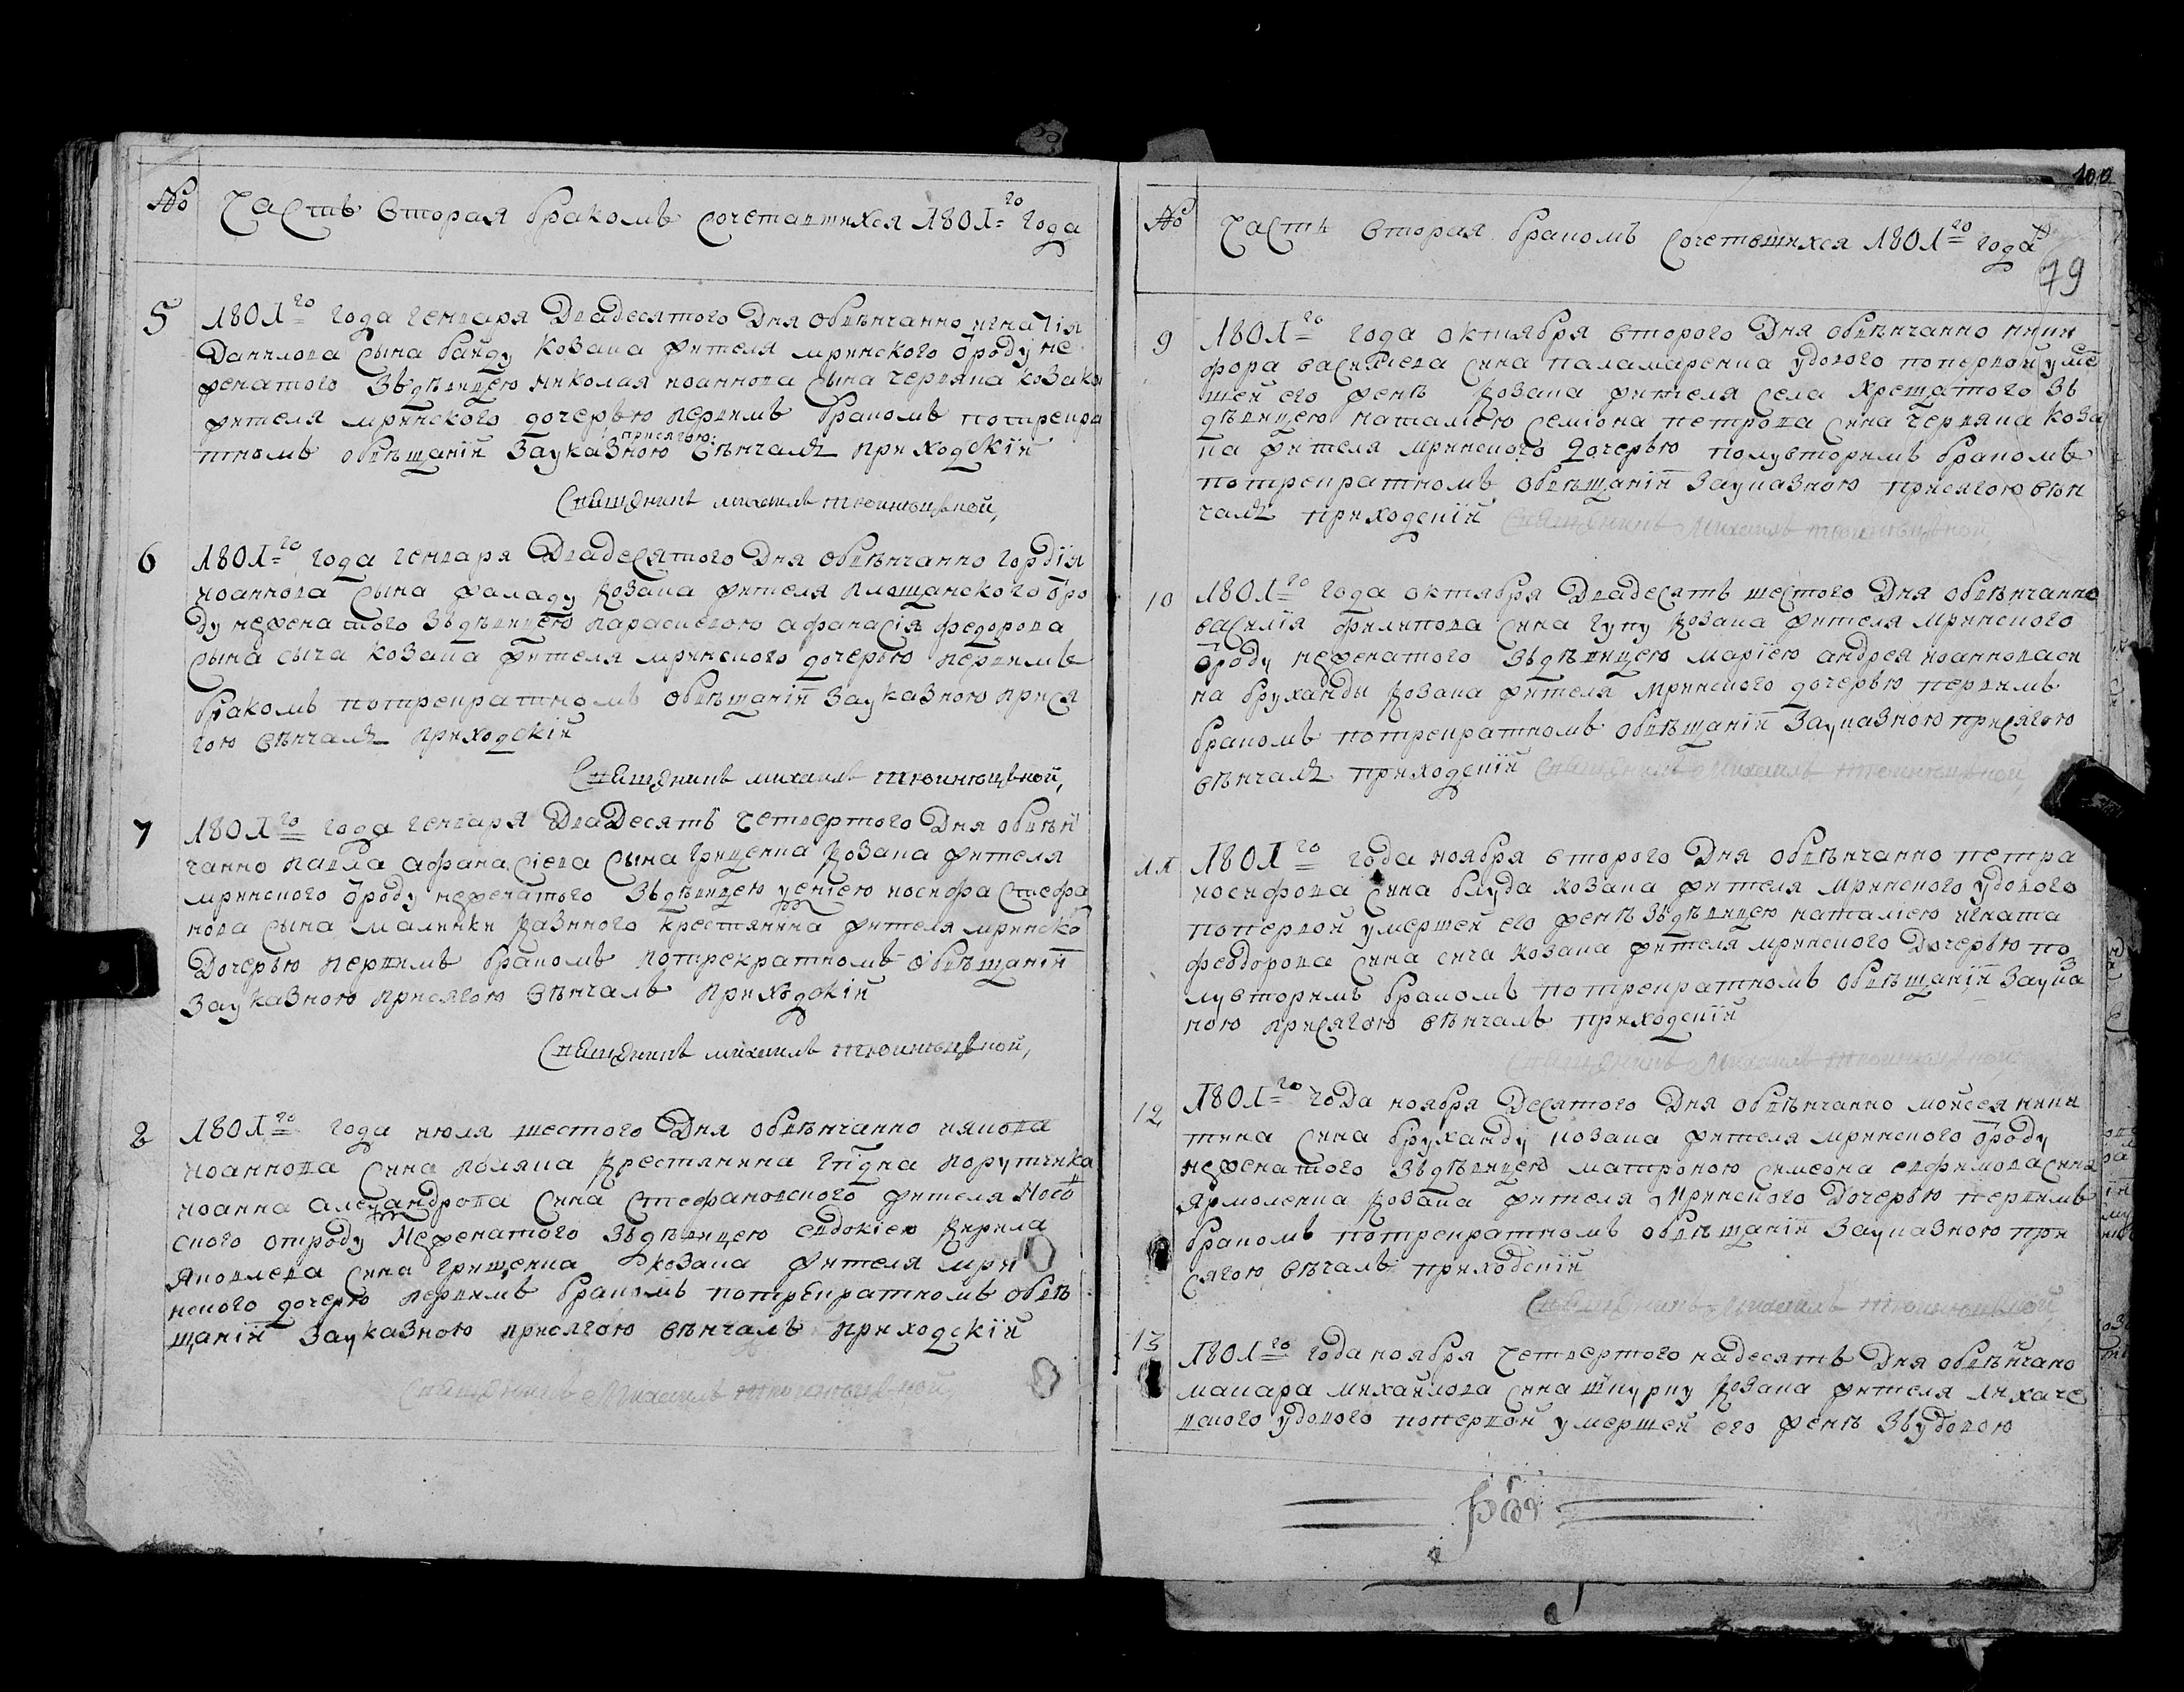 № Часть вторая бракомъ сочетавшихся 1801=го года
5 1801=го года генваря двадесятого дня обвѣнчанно игнатія
данилова сына байду козака жителя мринского ѿроду не
женатого зъдѣвицею николая иоаннова сына червяка козака
жителя мринского дочерью первимъ бракомъ потрекра
тномъ обвѣщаніи зауказною присягою вѣнчалъ приходскій
Священникъ михаилъ
6 1801=го года генваря двадесятого дня обвѣнчанно гордія
иоаннова сына козака жителя площанского ѿро
ду неженатого зъдѣвицею параскевою афанасія федорова
сына сыча козака жителя мринского дочерью первимъ
бракомъ потрекратномъ обвѣщаніи зауказною прися
гою вѣнчалъ приходскій
Священникъ михаилъ
7 1801го года генваря двадесять четвертого дня обвѣн
чанно павла афанасіева сына грищенка козака жителя
мринского ѿроду неженатого зъдѣвицею уеніею иосифа стефа
нова сына малинки казинного крестянина жителя мринско
дочерью первимъ бракомъ потрекратномъ обвѣщаніи
зауказною присягою вѣнчалъ приходскій
Священникъ михаилъ
8 1801го года июля шестого дня обвѣнчанно иякова
иоаннова сина поляка крестянина гпдна порутчика
иоанна александрова сина стефановского жителя носо
вского отроду неженатого зъдѣвицею евдокіею кирила
яковлева сина грищенка козака жителя мри
нского дочерю первимъ бракомъ потрекратномъ обвѣ
щаніи зауказною присягою вѣнчалъ приходскій
Священникъ Михаилъ
100
№ Часть вторая бракомъ сочетавшихся 1801го года
79
9 1801го года октября второго дня обвѣнчанно ники
фора василіева сина паламаренка удового попервой умер
шей его женѣ козака жителя села хрещатого зъ
дѣвицею наталіею семіона петрова сина червяка коза
ка жителя мринского дочерью полувторимъ бракомъ
потрекратномъ обвѣщаніи зауказною присягою вѣн
чалъ приходскій Священникъ Михаилъ
10 1801го года октября двадесять шестого дня обвѣнчанно
василія филипова сина гупу козака жителя мринского
ѿроду неженатого зъдѣвицею маріею андрея иоанноваси
на бруханди козака жителя мринского дочерью первимъ
бракомъ потрекратномъ обвѣщаніи зауказною присягою
вѣнчалъ приходскій Священникъ Михаилъ
11 1801го года ноября второго дня обвѣнчанно петра
иосифова сина блуда козака жителя мринского удового
попервой умершей его женѣ зъдѣвицею наталіею игната
феодорова сина сича козака жителя мринского дочерью по
лувторимъ бракомъ потрекратномъ обвѣщаніи заукаʒ
ною присягою вѣнчалъ приходскій
Священникъ Михаилъ
12 1801го года ноября десятого дня обвѣнчанно мойсея ники
тина сина бруханду козака жителя мринского ѿроду
неженатого зъдѣвицею матроною симеона евфимова сина
ярмоленка козака жителя мринского дочерью первимъ
бракомъ потрекратномъ обвѣщаніи зауказною при
сягою вѣчалъ приходскій
Священникъ Михаилъ
13 1801го года ноября четвертого надесять дня обвѣнчано
макара михайлова сина шкурку козака жителя лихаче
вского удового попервой умершей его женѣ зъудовою